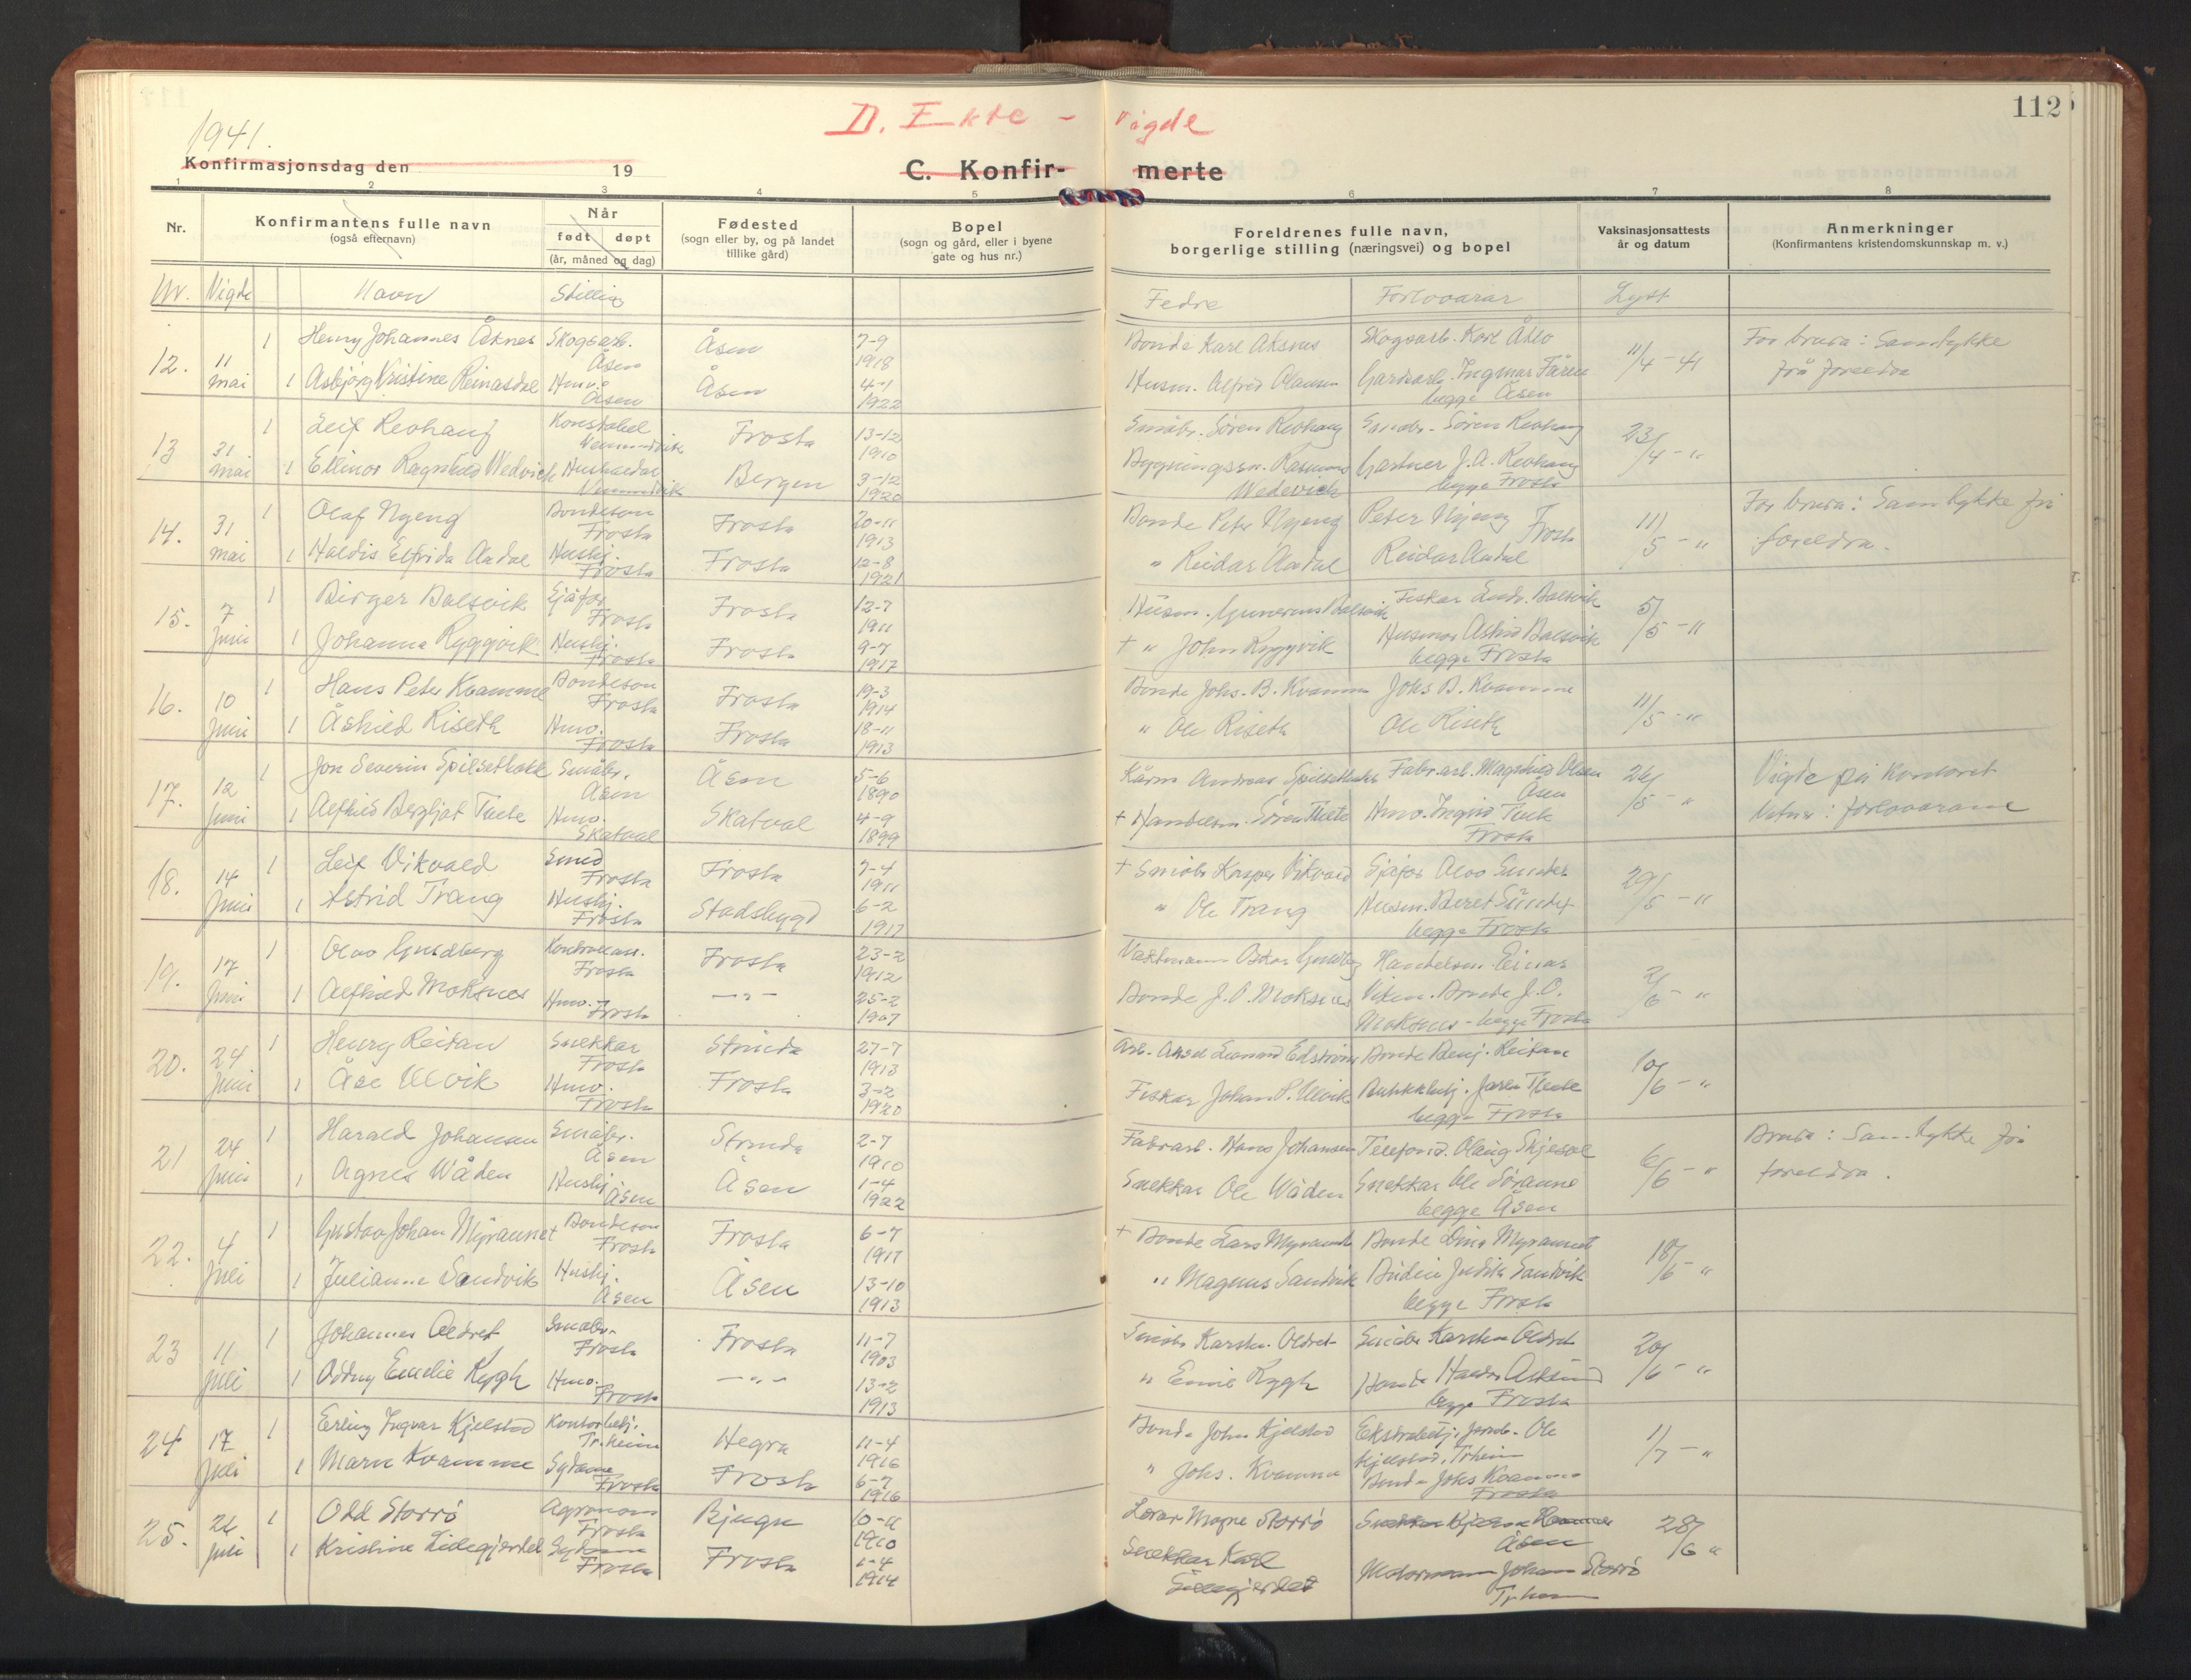 112
D. Ekte - vigde
1941.
Konfirmasjonsdag den 19
C. Konfir- merte
1 2 3 4 5 6 7 8
Nr.
Konfirmantens fulle navn
(også efternavn)
Når
født døpt
(år, måned og dag)
Fødested
(sogn eller by, og på landet
tillike gård)
Bopel
(sogn og gård, eller i byene
gate og hus nr.)
Foreldrenes fulle navn,
borgerlige stilling (næringsvei) og bopel
Vaksinasjonsattests
år og datum
Anmerkninger
(Konfirmantens kristendomskunnskap m. v.)
Nr. Vigde Navn Stilling Fedre Forlovarar Lyst
12. 11 mai
1 Henry Johannes Åknes Skogsarb. Åsen Åsen 7-9 1918 Bonde Karl Skogsarb. Karl 11/4 - 41 For brura: Samtykke
1 Asbjørg Kristine Reinasdal Hmv. Åsen Åsen 4-1 1922 Husm. Alfred Olausen Gardsarb. Ingmar Fåren begge Åsen frå foreldra
13 31 mai
1 Leif Revhaug Konstabel Frosta 13-12 1910 Småbr. Søren Revhaug Småbr. Søren Revhaug 23/4 - "
1 Ellinor Ragnhild Wedvich Bergen 3-12 1920 Bygningssn. Rasmus Wedevich Gartner J.A. Revhaug begge Frosta
14. 31 mai
1 Olaf Nyeng Bondeson Frosta Frosta 20-11 1913 Bonde Peter Nyeng Peter Nyeng Frosta 11/5 - " For brura: Samtykke frå
1 Haldis Elfrida Aadal Hushj. Frosta Frosta 12-8 1921 " Reidar Aadal Reidar Aadal foreldra.
15. 7 Juni
1 Birger Balsvik Sjåfør Frosta Frosta 12-7 1911 Husm. Gunerius Balsvik Fiskar Balsvik 5/5 - "
1 Johanna Ryggvik Hushj. Frosta Frosta 9-7 1917 + " John Ryggvik Husmor Astrid Balsvik begge Frosta
16. 10 Juni
1 Hans Peter Kvamme Bondeson Frosta Frosta 19-3 1914 Bonde Johs. B. Kvamme Johs B. Kvamme 11/5 - "
1 Åshild Riseth Hmv. Frosta Frosta 18-11 1913 " Ole Riseth Ole Riseth
17. 12 Juni
1 Jon Severin Småbr. Åsen Åsen 5-6 1890 Andreas Fabr.arb. Magnhild Olsen Åsen 26/5 - " Vigde på Kontoret
1 Alfhild Bergljot Tuete Hmv. Skatval Skatval 4-9 1899 + Handelsm. Søren Hmv. Ingrid Frosta Vitner: forlovarane
18. 14 Juni
1 Leif Vikvald Smed Frosta Frosta 7-4 1911 + Småbr Kasper Vikvald Sjåfør Olav 29/5 - "
1 Astrid Trang Hushj. Frosta Stadsbygd 6-2 1917 " Ole Trang Husm. Beret begge Frosta
19. 17 Juni
1 Olav Gundberg Kontrollass. Frosta Frosta 23-2 1912 Vaktmann Oskar Handelsm. Einar 2/6 - "
1 Alfhild Moksnes Hmv. Frosta - " - 25-2 1907 Bonde J. O. Moksnes Viken. Bonde J. O. Moksnes - begge Frosta
20. 24 Juni
1 Henry Reitan Snekkar Frosta Strinda 27-7 1913 Arb. Edstrøm Bonde Benj. Reitan 10/6 - "
1 Åse Ulvik Hmv. Frosta Frosta 3-2 1920 Fiskar Johan P. Ulvik Butikkhj. Jarle begge Frosta
21 24 Juni
1 Harald Johansen Småbr. Åsen Strinda 2-7 1910 Fabr.arb. Hans Johansen Telefond. Olaug Skjesol 6/6 - " Brura: Samtykke frå
1 Agnes Wåden Hushj. Åsen Åsen 1-4 1922 Snekkar Ole Wåden Snekkar Ole Søraune begge Åsen foreldra.
22. 4 Juli
1 Gustav Johan Myraunet Bondeson Frosta Frosta 6-7 1917 + Bonde Lars Myraunet Bonde Myraunet 18/6 - "
1 Julianne Sandvik Hushj. Åsen Åsen 13-10 1913 " Magnus Sandvik Sandvik begge Frosta
23 11 Juli
1 Johannes Oldret Småbr. Frosta Frosta 11-7 1903 Småbr Karsten Oldret Småbr Karsten Oldret 20/6 - "
1 Oddny Emelie Rygh Hmv. Frosta - " - 13-2 1913 " Rygh begge Frosta
24 17 Juli
1 Erling Ingvar Kjelstad Kontorbetj. Tr.heim Hegra 11-4 1916 Bonde John Kjelstad Ekstrabetj. Ole Kjelstad, Trheim 1/7 - "
1 Marn Kvamme Sydame Frosta Frosta 6-7 1916 " Johs. Kvamme Bonde Johs Kvamme Frosta
25. 26 juli
1 Odd Storrø Agronom Frosta Bjugn 10-11 1910 Lærar Mogne Storrø Snekkar Åsen 28/6 "
1 Kristine Lillegjerdet Sydame Frosta Frosta 1-4 1914 Snekkar Karl Johan Storrø